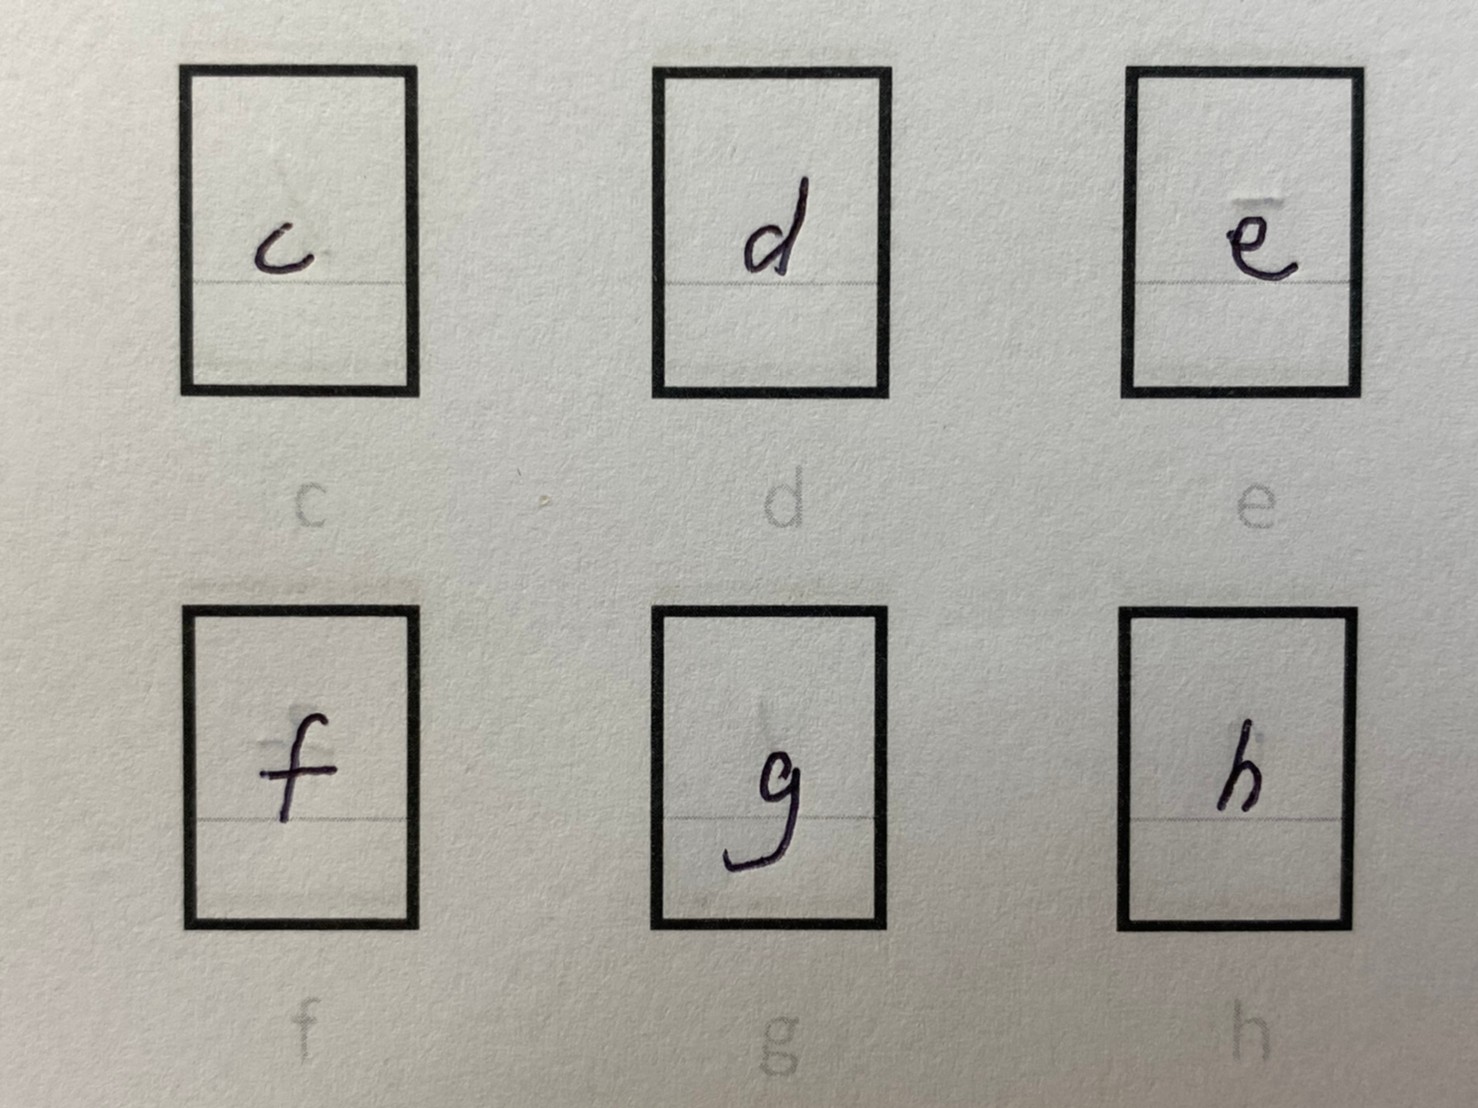 c d e
c d e
f g h
f g h